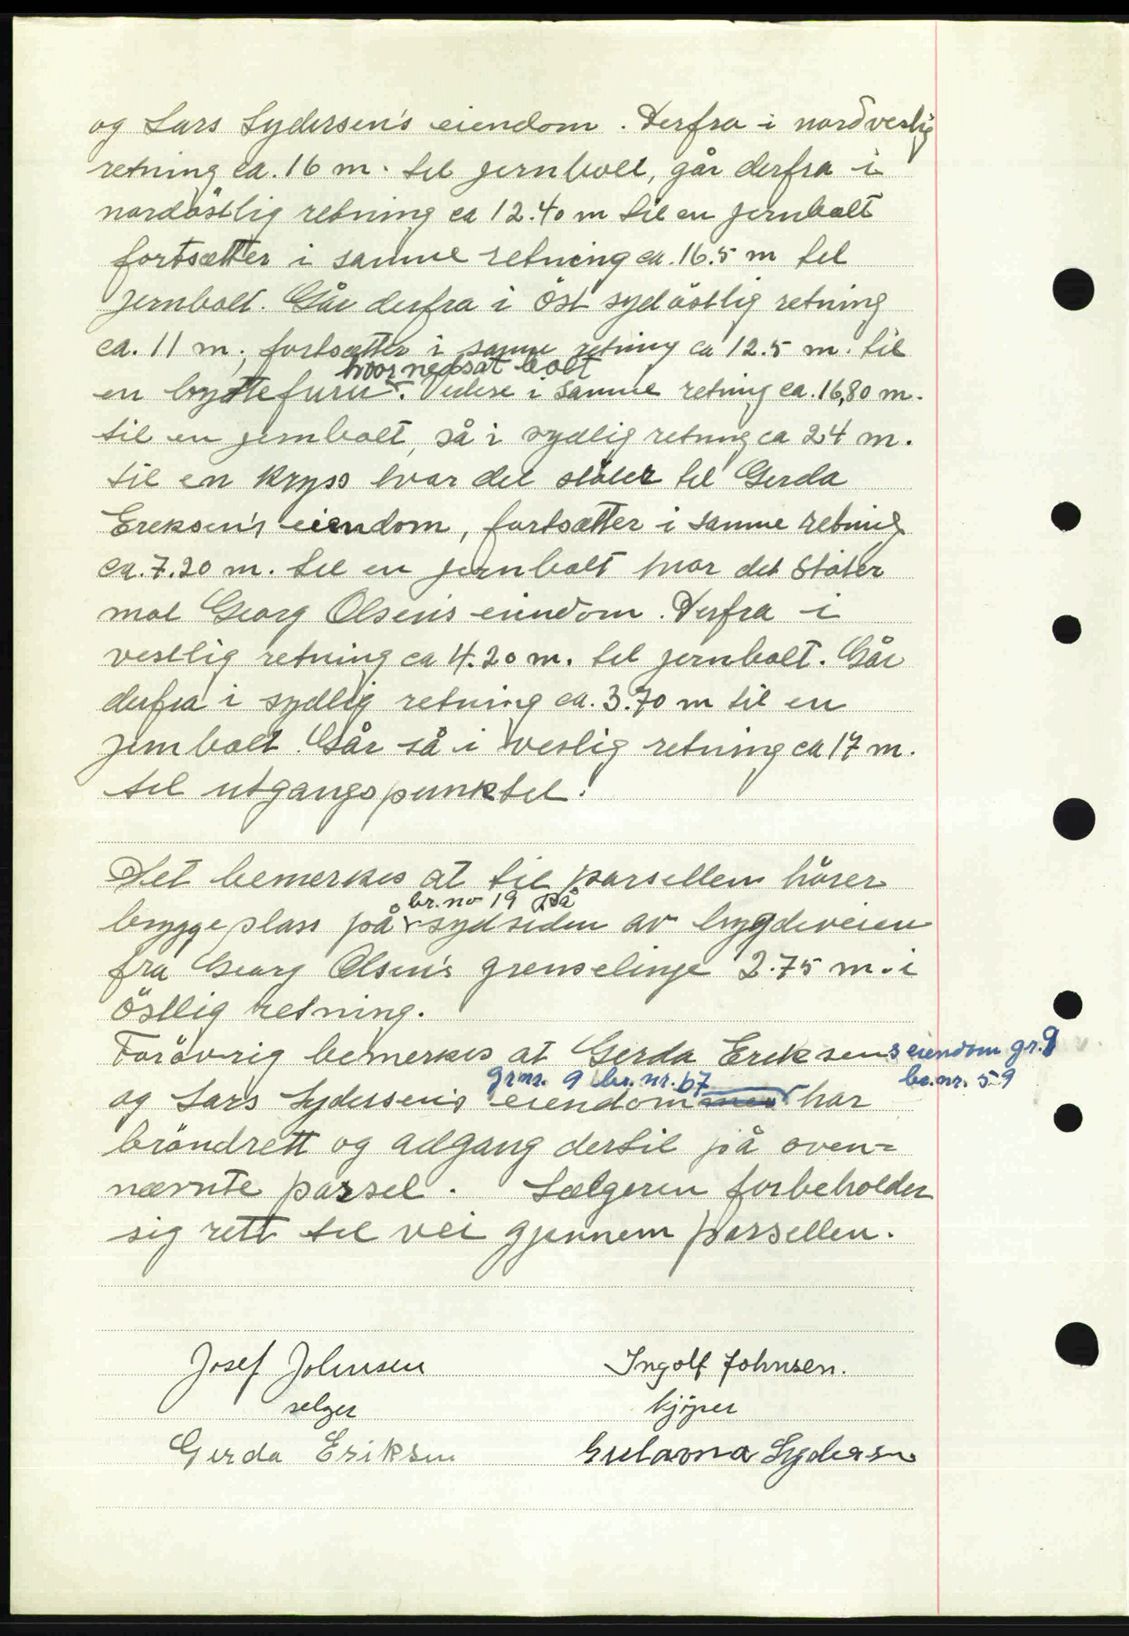 og Lars Sydersen's eiendom. Derfra i nordvestlig
retning ca. 16 m. til jernbolt, går derfra i
nordöstlig retning ca 12.40 m til en jernbolt
fortsætter i samme retning ca. 16.5 m til
jernbolt. Går derfra i öst sydöstlig retning
ca. 11 m, fortsætter i samme retning ca 12.5 m. til
hvor nedsat bolt
en byttefuru. Videre i samme retning ca. 16,80 m.
til en jernbolt, så i sydlig retning ca 24 m.
til en kryss hvor det stöter til Gerda
Ereksen's eiendom, fortsætter i samme retning
ca. 7.20 m. til en jernbolt hvor det stöter
mot Georg Olsen's eiendom. Derfra i
vestlig retning ca 4.20 m. til jernbolt. Går
derfra i sydlig retning ca. 3.70 m til en
jernbolt. Går så i vestlig retning ca 17 m.
til utgangspunktet.
Det bemerkes at til parsellen hörer
br. no 19 på
bryggeplass på sydsiden av bygdeveien
fra Georg Olsen's grenselinje 2.75 m. i
östlig retning.
Forövrig bemerkes at Gerda Ereksens eiendom gr. 9
grnr. 9 br. nr. 67 br. nr. 59
og Lars Sydersen's eiendom har
bröndrett og adgang dertil på oven=
nævnte parsel. Sælgeren forbeholder
sig rett til vei gjennem parsellen.
Josef Johnsen Ingolf Johnsen.
selger kjöper
Gerda Eriksen Gulovna Sydersen